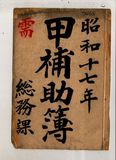 昭和十七年
需
甲補助簿
総務課